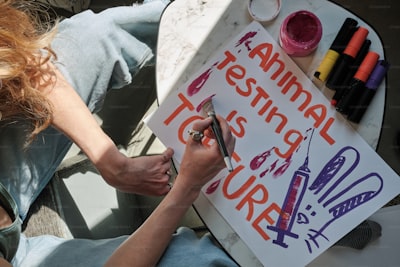 Animal
Testing
is
Torture